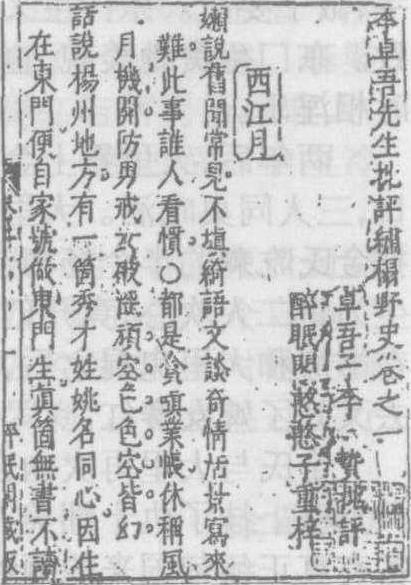 李卓吾先生批評繡榻野史卷之一
卓吾子李贄批評
醉眠閣憨憨子重梓
西江月
嬾說舊聞常見不填綺語文談奇情活景寫來
難此事誰人看慣〇都是貪嗔業帳休稱風
月機關防男戒女破淫頑空色色空皆幻
話說楊州地方有一箇秀才姓姚名同心因住
在東門便自家號做東門生真箇無書不讀
醉眠閣藏板